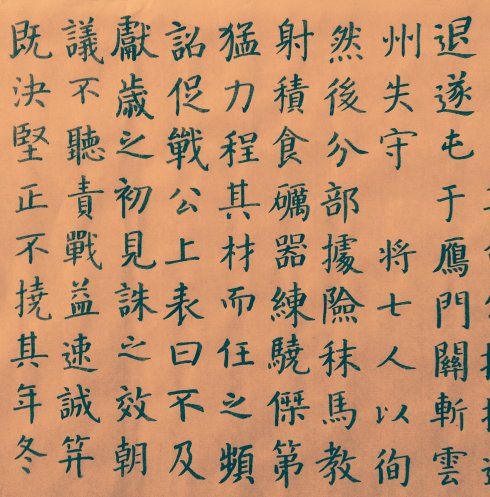 退遂屯于鴈門關斬雲
州失守 將七人以徇
然後分部據險秣馬教
射積食礪器練驍傑第
猛力程其材而任之頻
詔促戰公上表曰不及
獻歲之初見誅之效朝
議不聽責戰益速誠筭
既決堅正不撓其年冬